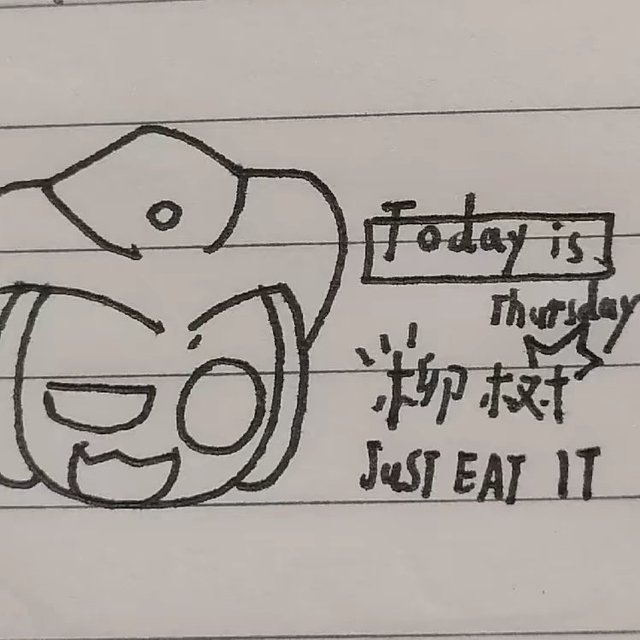 Today is
Thursday
柳树
JUST EAT IT